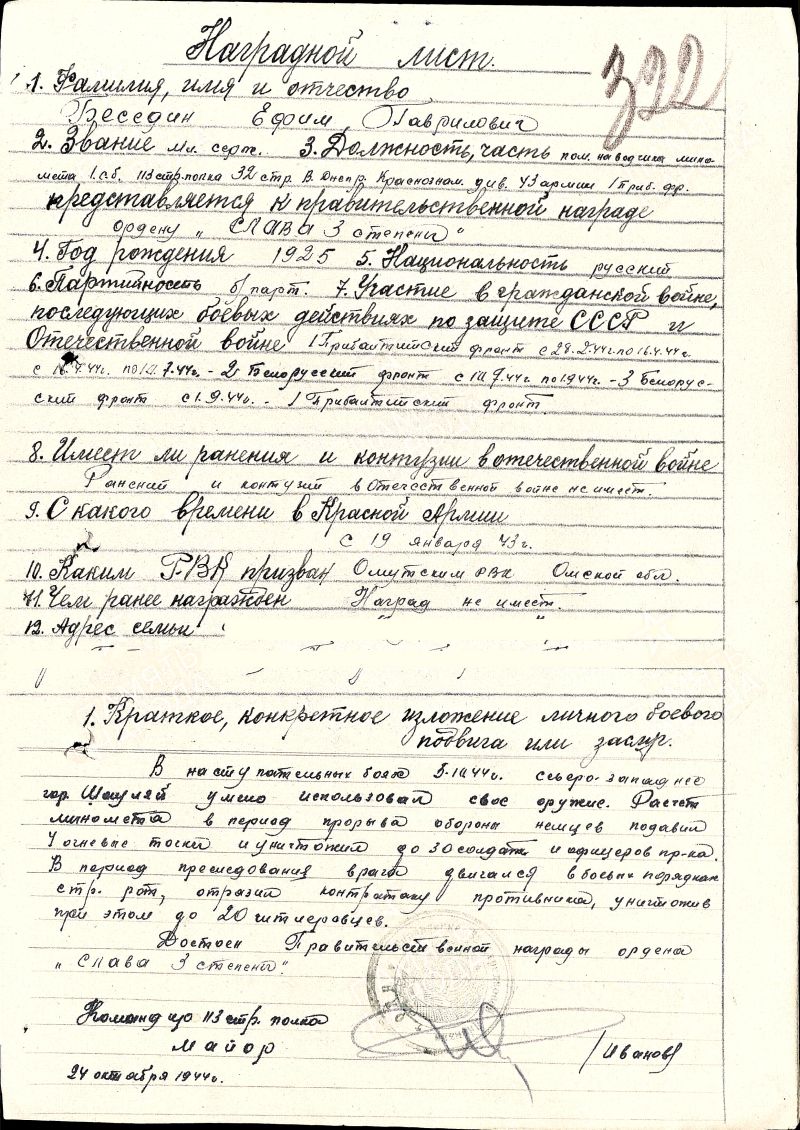 Наградной лист.
322
1. Фамилия, имя и отчество
Беседин Ефим Гаврилович
2. Звание мл. серж. 3. Должность, часть пом. наводчика мино-
мета 1 с.б. 113 стр. полка 32 стр. В. Днепр. Краснознам. див. 43 армии 1 Приб. фр.
представляется к правительственной награде
ордену „СЛАВА 3 степени"
4. Год рождения 1925 5. Национальность русский
6. Партийность б/парт. 7. Участие в гражданской войне,
последующих боевых действиях по защите СССР и
Отечественной войне 1 Прибалтийский фронт с 28.2.44г. по 16.4.44г.
с 7.44г. по 7.44г. - 2 Белорусский фронт с 7.44г. по 1.9.44г. - 3 Белорус-
ский фронт с 1.9.44г. - 1 Прибалтийский фронт
8. Имеет ли ранения и контузии в отечественной войне
Ранений и контузий в Отечественной войне не имеет.
9. С какого времени в Красной Армии
с 19 января 43г.
10. Каким РВК призван Омутским РВК Омской обл.
11. Чем ранее награжден Наград не имеет.
12. Адрес семьи
1. Краткое, конкретное изложение личного боевого
подвига или заслуг.
В наступательных боях 5.10.44г. северо-западнее
гор. Шауляй умело использовал свое оружие. Расчет
миномета в период прорыва обороны немцев подавил
4 огневые точки и уничтожил до 30 солдат и офицеров пр-ка.
В период преследования врага двигался в боевых порядках
стр. рот, отразил контратаку противника, уничтожив
при этом до 20 гитлеровцев.
Достоен Правительственной награды ордена
„СЛАВА 3 степени".
Командир 113 стр. полка
майор /Иванов/
24 октября 1944г.